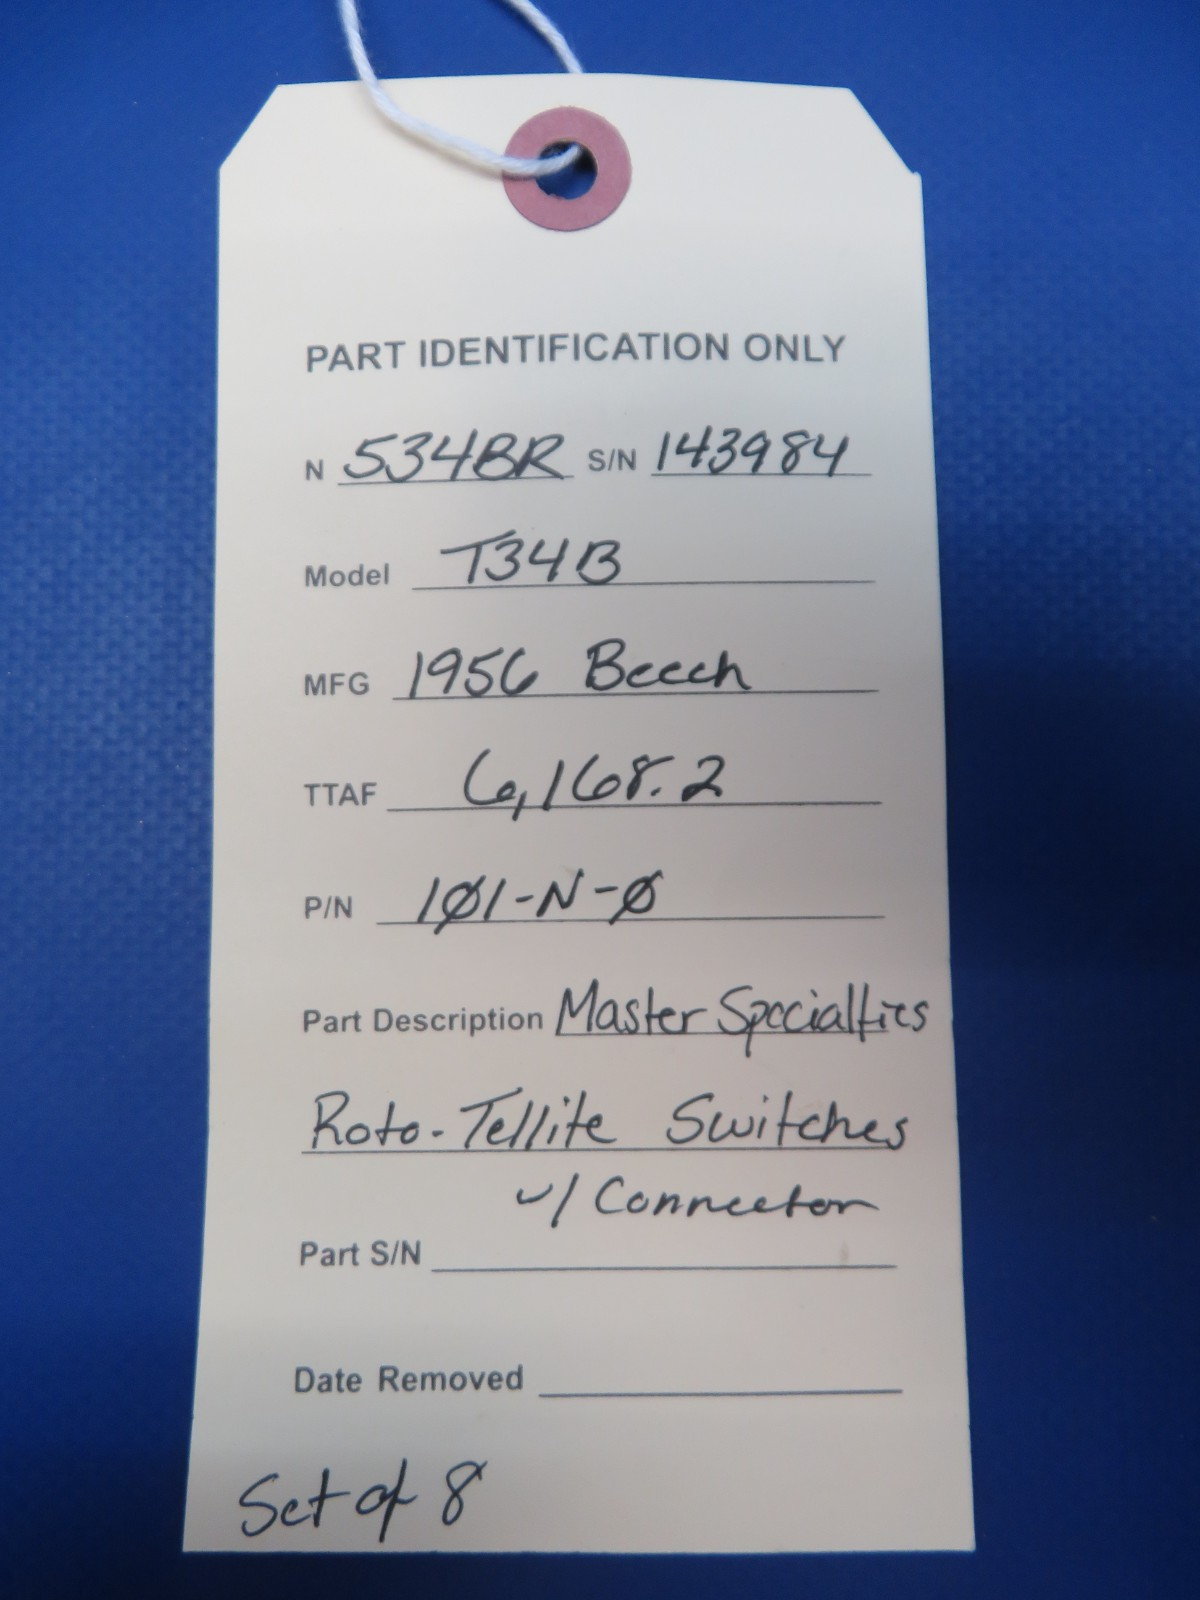 PART IDENTIFICATION ONLY
N 534BR S/N 143984
Model T34B
MFG 1956 Beech
TTAF 6,168.2
P/N 101-N-0
Part Description Master Specialties
Roto-Tellite Switches
w/ Connector
Part S/N
Date Removed
Set of 8